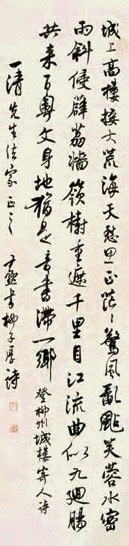 城上高樓接大荒海天愁思正茫々驚風亂颭芙蓉水密
雨斜侵薜荔牆嶺樹重遮千里目江流曲似九迴腸
共來百粵文身地猶是音書滯一鄉 登柳州城樓寄人詩
一清先生法家正之 書柳子厚詩